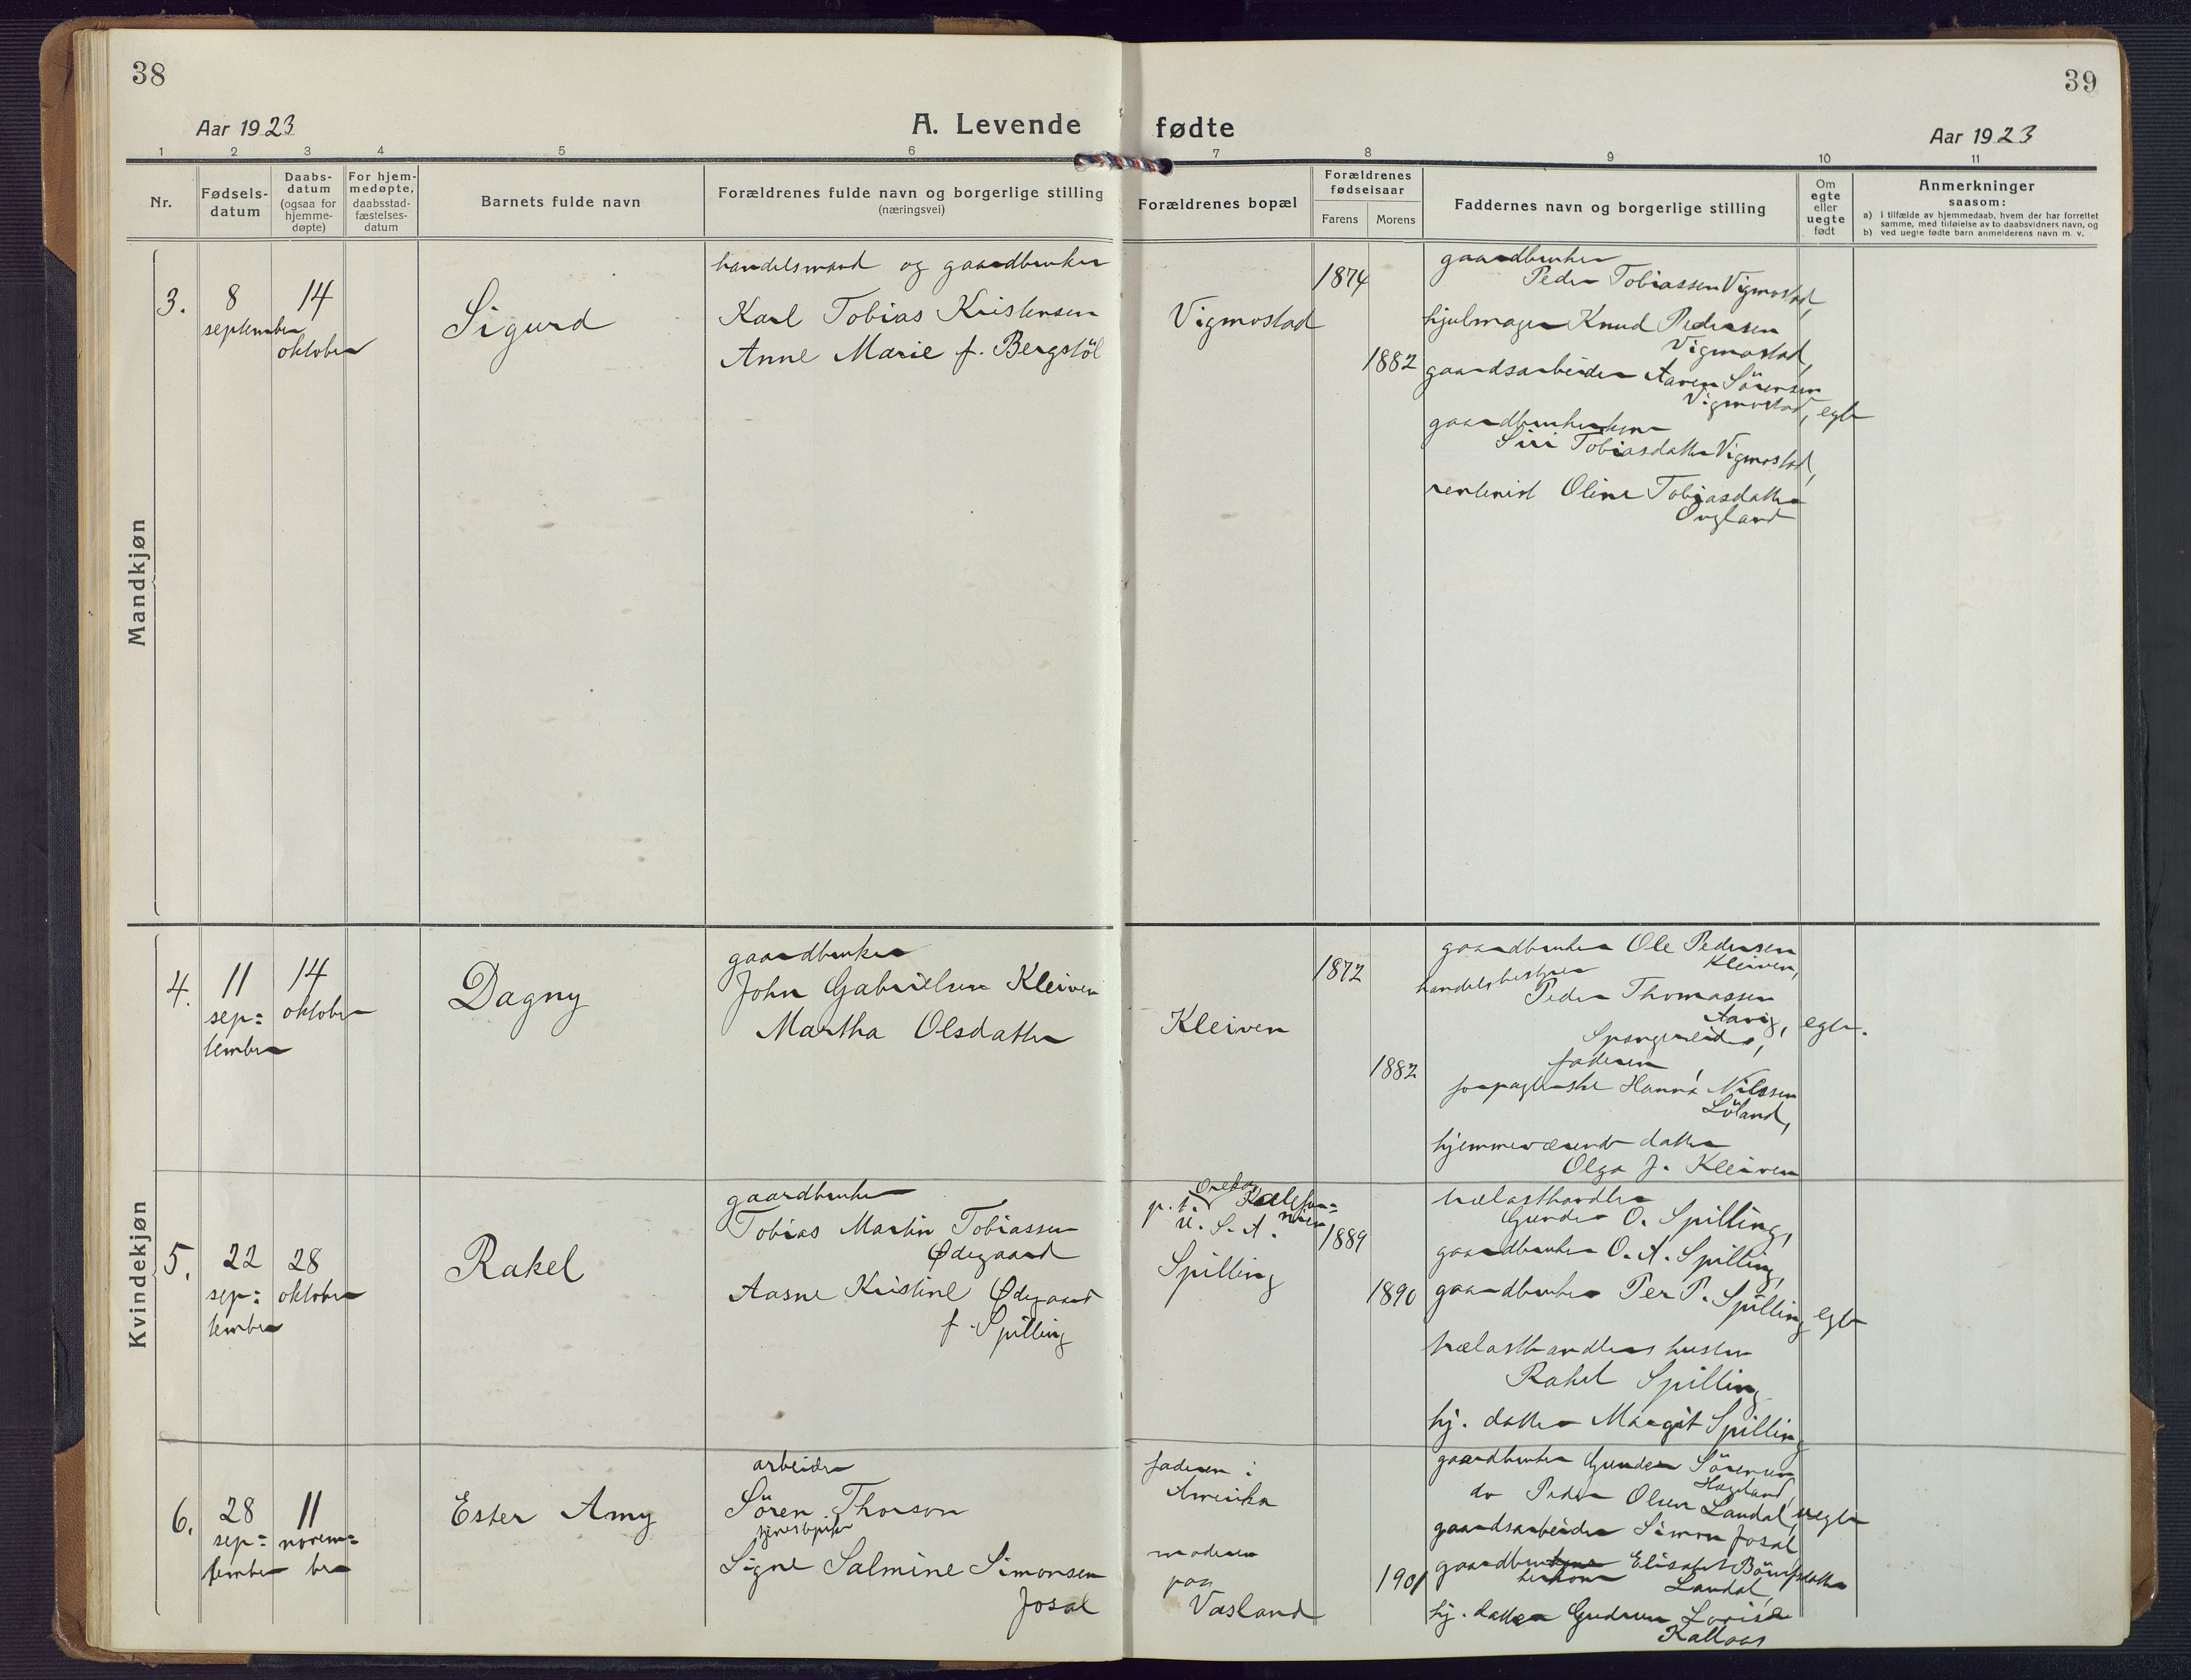 38
39
Aar 1923
A. Levende fødte
Aar 1923
1 2 3 4 5 6 7 8 9 10 11
Nr.
Fødsels-
datum
Daabs-
datum
(ogsaa for
hjemme-
døpte)
For hjem-
medøpte,
daabsstad-
fæstelses-
datum
Barnets fulde navn
Forældrenes fulde navn og borgerlige stilling
(næringsvei)
Forældrenes bopæl
Forældrenes
fødselsaar
Farens Morens
Faddernes navn og borgerlige stilling
Om
egte
eller
uegte
født
Anmerkninger
saasom:
a) I tilfælde av hjemmedaab, hvem der har forrettet
samme, med tilføielse av to daabsvidners navn, og
b) ved uegte fødte barn anmelderens navn m. v.
Mandkjøn
3.
8
september
14
oktober
Sigurd
handelsmand og gaardbruker
Karl Tobias Kristensen
Anne Marie f. Bergstöl
Vigmostad
1874
1882
gaardbruker
Peder Tobiassen Vigmostad,
hjulmager Knud Pedersen
Vigmostad,
gaardsarbeider Aaren Sörensen
Vigmostad,
gaardbrukerkone
Siri Tobiasdatter Vigmostad,
rentenist Oline Tobiasdatter
egte
Kvindekjøn
4.
11
sep=
tember
14
oktober
Dagny
gaardbruker
John Gabrielsen Kleiven
Martha Olsdatter
Kleiven
1872
1882
gaardbruker Ole Pedersen
Kleiven,
handelsbestyrer
Peder Thomassen
Aavig,
Spangereid,
faderen
Hanna Nilssen
Löland,
hjemmeværende datter
Olga J. Kleiven
egte.
5.
22
sep=
tember
28
oktober
Rakel
gaardbruker
Tobias Martin Tobiassen
Ødegaard
Aasne Kristine Ødegaard
f. Spilling
p. t.
U. S. A.
Spilling
1889
1890
trælasthandler
Gunder O. Spilling,
gaardbruker O. A. Spilling,
gaardbruker Per P. Spilling
trælasthandlers hustru
Rakel Spilling
hj. datter Margit Spilling
egte
6.
28
sep=
tember
11
novem=
ber
Ester Amy
arbeider
Sören Thorson
tjenestepike
Signe Salmine Simonsen
Josal
faderen i
Amerika
moderen
paa
Vasland
1901
gaardbruker Gunder Sörensen
Hageland,
do Peder Olsen Landal,
gaardsarbeider Simon Josal
gaardbrukerkone Elisabet
Landal,
hj. datter Gudrun Lovise
Kallaas
uegte